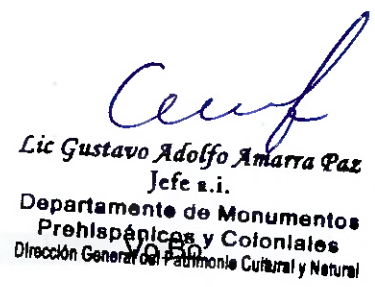 Lic Gustavo Adolfo Amarra Paz
Jefe a.i.
Departamento de Monumentos
Prehispánicos y Coloniales
Vo.Bo.
Dirección General del Patrimonio Cultural y Natural